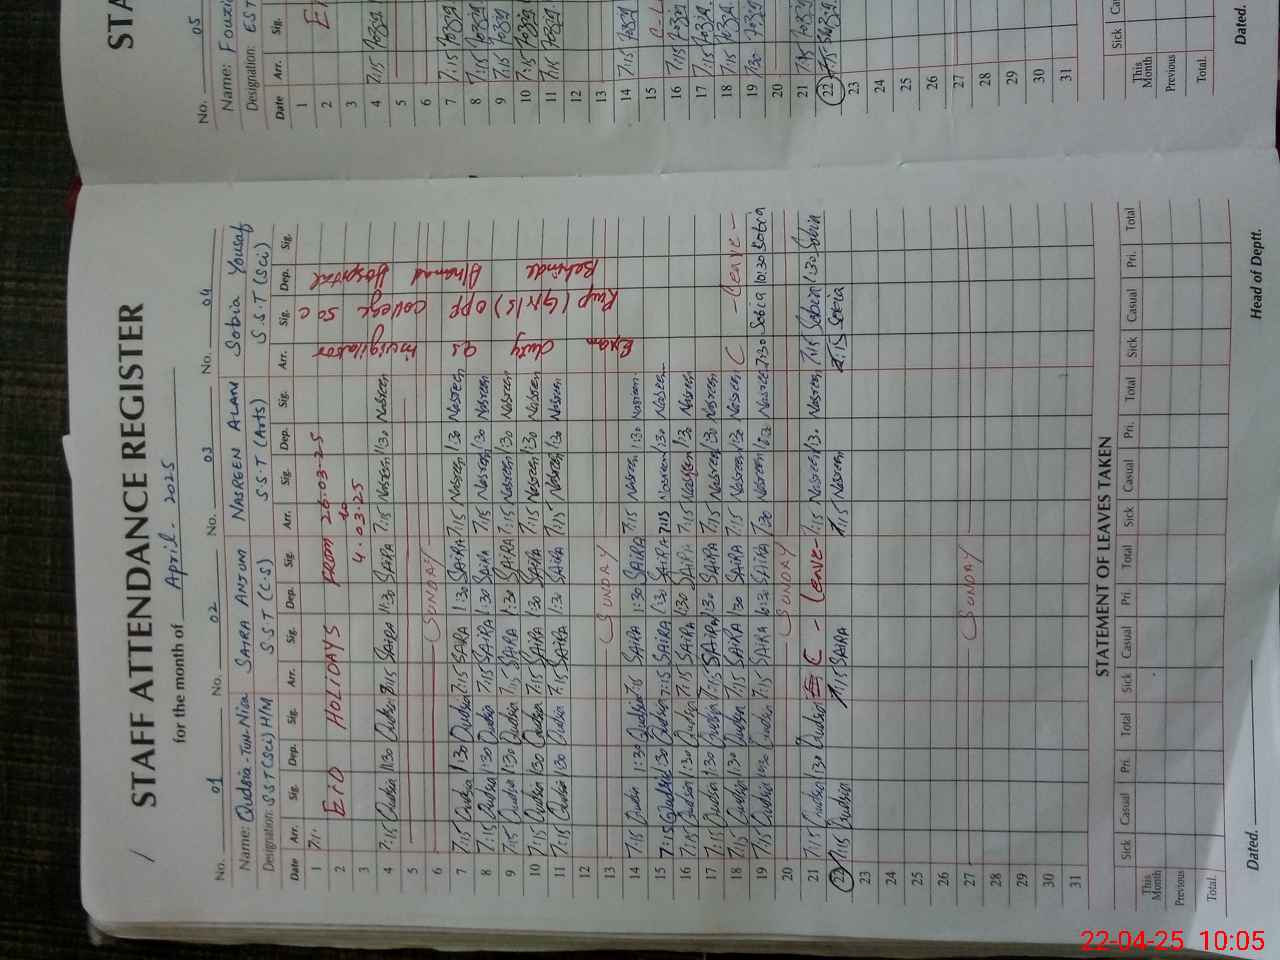 STAFF ATTENDANCE REGISTER
for the month of April. 2025
No. 01 No. 02 No. 03 No. 04
Name: Qudsia-Tun-Nisa SAIRA ANJUM NASREEN ALAM Sobia Yousaf
Designation: S.S.T (Sci) H/M S.S.T (C.S) S.S.T (Arts) S.S.T (Sci)
Date Arr. Sig. Dep. Sig. Arr. Sig. Dep. Sig. Arr. Sig. Dep. Sig. Arr. Sig. Dep. Sig.
1
2 EID HOLIDAYS FROM 26-03-25
to
3 4.03.25
Exam duty as invigilator
Rwp (Girls) opp college
Behinde Ahamad Hospital
4 7:15 Qudsia 1:30 Qudsia 7:15 SAIRA 1:30 SAIRA 7:15 Nasreen 1:30 Nasreen
5
6 SUNDAY
7 7:15 Qudsia 1:30 Qudsia 7:15 SAIRA 1:30 SAIRA 7:15 Nasreen 1:30 Nasreen
8 7:15 Qudsia 1:30 Qudsia 7:15 SAIRA 1:30 SAIRA 7:15 Nasreen 1:30 Nasreen
9 7:15 Qudsia 1:30 Qudsia 7:15 SAIRA 1:30 SAIRA 7:15 Nasreen 1:30 Nasreen
10 7:15 Qudsia 1:30 Qudsia 7:15 SAIRA 1:30 SAIRA 7:15 Nasreen 1:30 Nasreen
11 7:15 Qudsia 1:30 Qudsia 7:15 SAIRA 1:30 SAIRA 7:15 Nasreen 1:30 Nasreen
12
13 SUNDAY
14 7:15 Qudsia 1:30 Qudsia 7:15 SAIRA 1:30 SAIRA 7:15 Nasreen 1:30 Nasreen
15 7:15 Qudsia 1:30 Qudsia 7:15 SAIRA 1:30 SAIRA 7:15 Nasreen 1:30 Nasreen
16 7:15 Qudsia 1:30 Qudsia 7:15 SAIRA 1:30 SAIRA 7:15 Nasreen 1:30 Nasreen
17 7:15 Qudsia 1:30 Qudsia 7:15 SAIRA 1:30 SAIRA 7:15 Nasreen 1:30 Nasreen
18 7:15 Qudsia 1:30 Qudsia 7:15 SAIRA 1:30 SAIRA 7:15 Nasreen 1:30 Nasreen C - Leave -
19 7:15 Qudsia 10:30 Qudsia 7:15 SAIRA 10:30 SAIRA 7:30 Nasreen 10:30 Nasreen 7:30 Sobia 10:30 Sobia
20 SUNDAY
21 7:15 Qudsia 1:30 Qudsia C - Leave - 7:15 Nasreen 1:30 Nasreen 7:15 Sobia 1:30 Sobia
22 7:15 Qudsia 7:15 SAIRA 7:15 Nasreen 7:15 Sobia
23
24
25
26
27 SUNDAY
28
29
30
31
STATEMENT OF LEAVES TAKEN
Sick Casual Pri. Total Sick Casual Pri. Total Sick Casual Pri. Total Sick Casual Pri. Total
This Month
Previous
Total.
Dated. Head of Deptt.
STA
No. 05
Name: Fouzi
Designation: EST
Date Arr. Sig.
1
2 EI
3
4 7:15
5
6
7 7:15
8 7:15
9 7:15
10 7:15
11 7:15
12
13
14 7:15
15
16 7:15
17 7:15
18 7:15
19 7:30
20
21 7:15
22 7:15
23
24
25
26
27
28
29
30
31
Sick Ca
This Month
Previous
Total.
Dated.
22-04-25 10:05